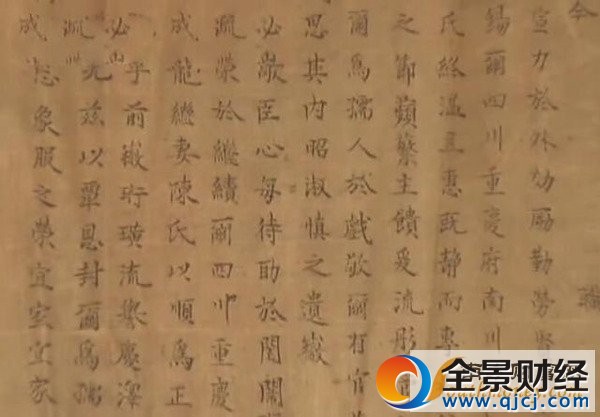 令
宣力於外効勵勤勞
錫爾四川重慶府南川
氏終溫且惠既靜而專
之節蘋蘩主饋爰流彤
爾爲孺人於戲敬爾有官
思其內昭淑慎之遺徽
必敬臣心每待助於閨闈
疏榮於繼續爾四川重慶
成龍繼妻陳氏以順爲正
必乎前徽珩璜流繁慶澤
疏尤茲以覃恩封爾爲孺
成象服之榮宜室宜家
全景财经
www.qjcj.com